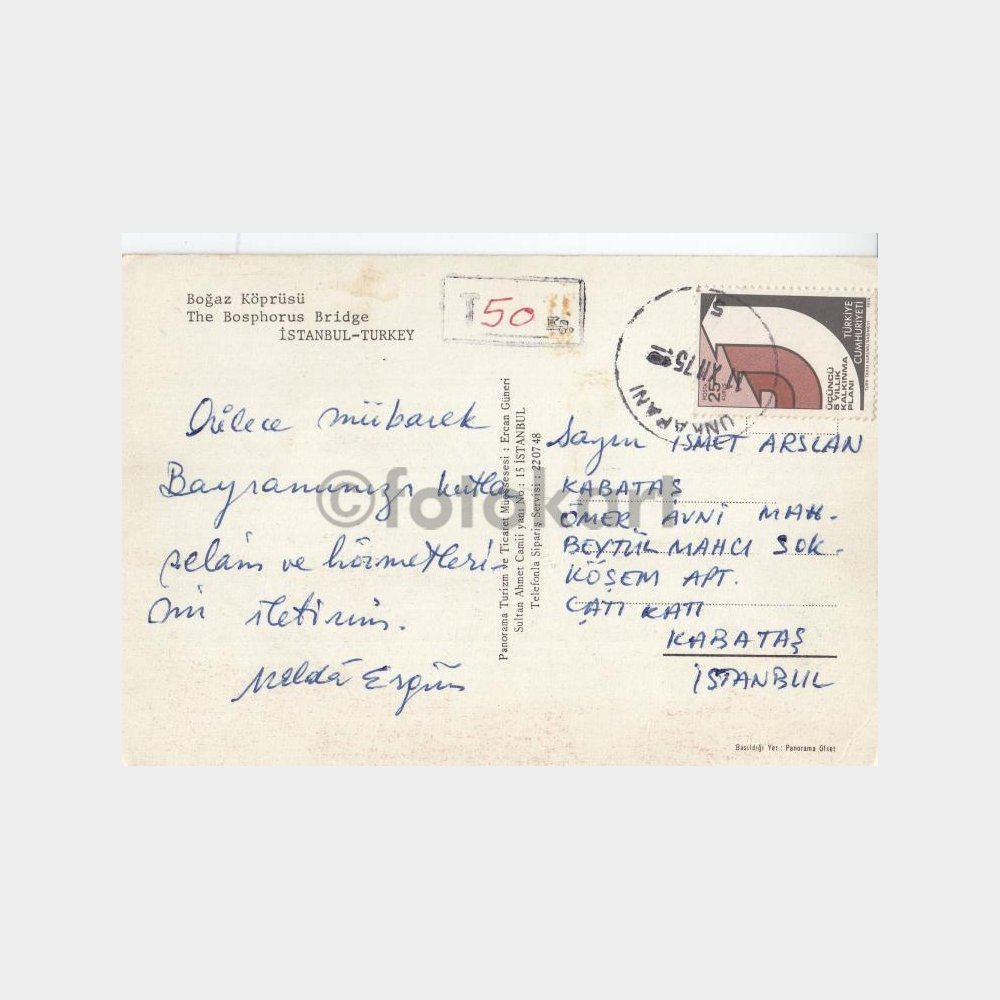 Boğaz Köprüsü
The Bosphorus Bridge
İSTANBUL-TURKEY
T 50
UNKAPANI
17 XII 75
TÜRKİYE
CUMHURİYETİ
ÜÇÜNCÜ
5 YILLIK
KALKINMA
PLANI
POSTA
25
mübarek
Bayramınızı kutlar
selâm ve hörmetleri-
mi iletirim.
Melda Ergün
Panorama Turizm ve Ticaret Müessesesi : Ercan Güneri
Sultan Ahmet Camii yanı No : 15 İSTANBUL
Telefonla Sipariş Servisi : 22 07 48
Sayın İSMET ARSLAN
KABATAŞ
ÖMER AVNİ MAH.
BEYTÜL MAHCI SOK.
KÖŞEM APT.
ÇATI KATI
KABATAŞ
İSTANBUL
Basıldığı Yer : Panorama Ofset
©fotokart